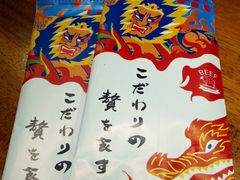 こだわりの
贅を
こだわりの
贅を
BEEF